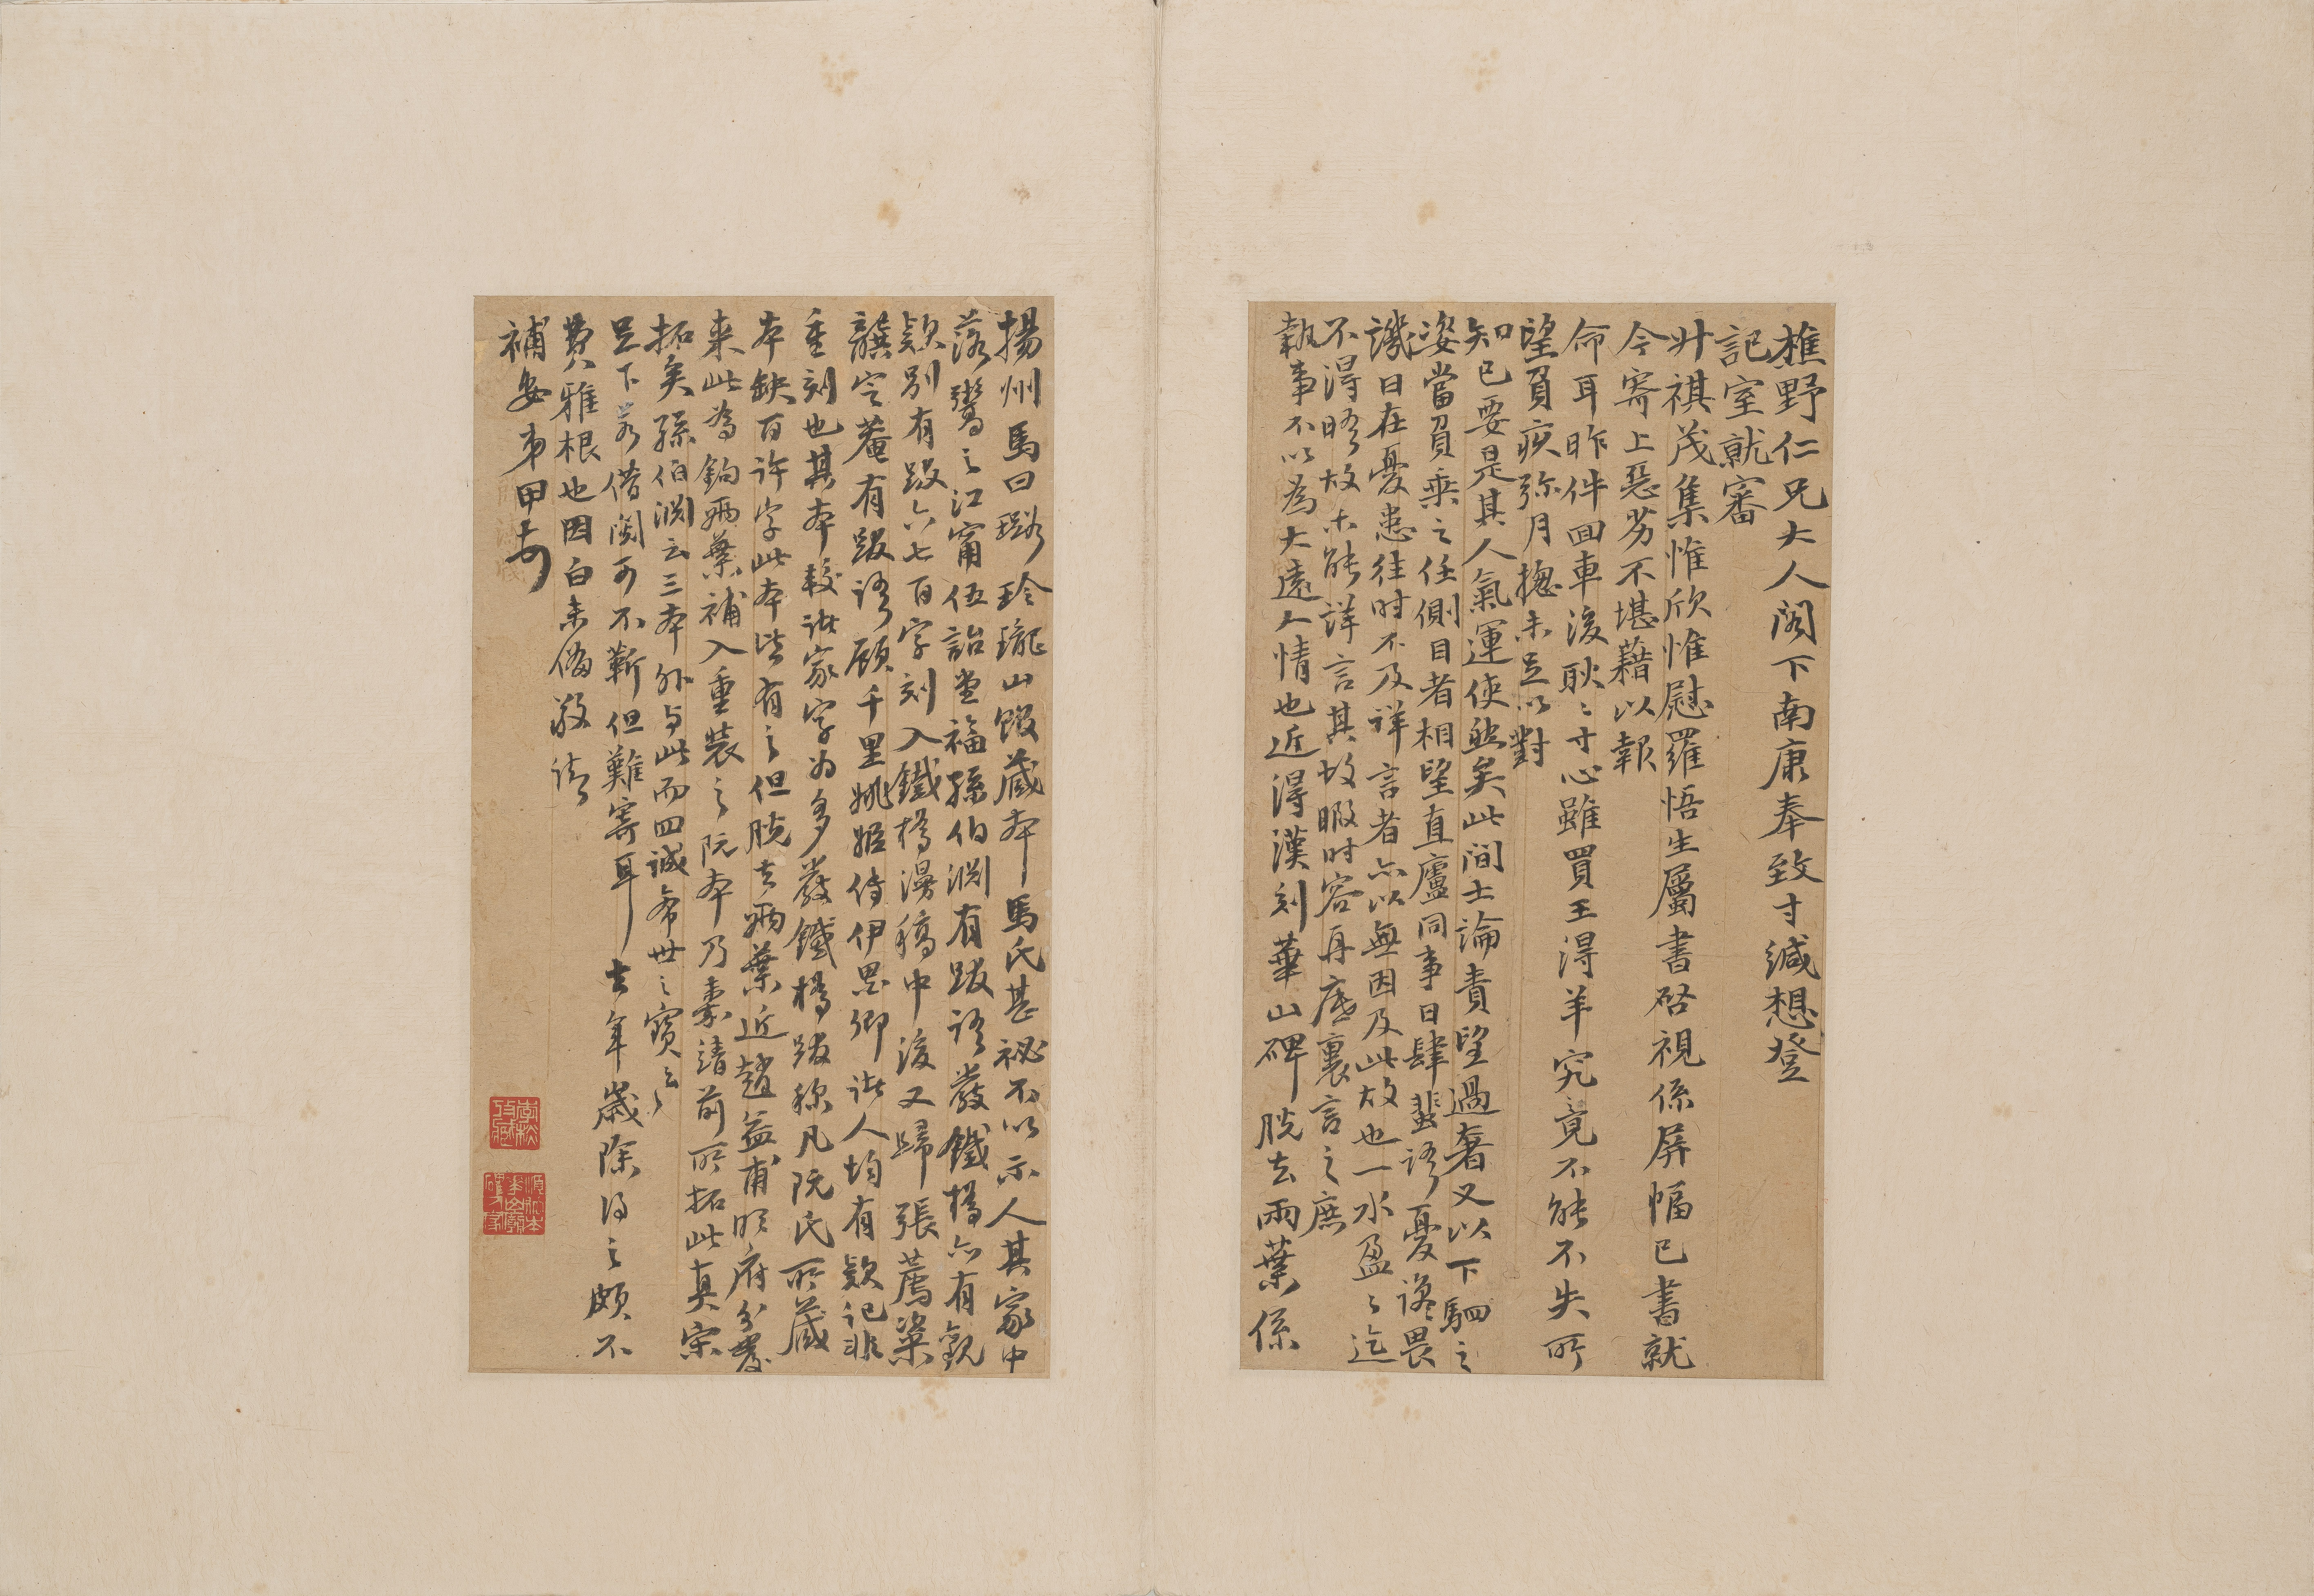 樵野仁兄大人閣下南康奉致寸緘想登
記室就審
升祺茂集惟欣惟慰羅悟生屬書啓視係屏幅已書就
今寄上惡劣不堪藉以報
命耳昨伻回車後耿〻寸心雖買王得羊究竟不能不失所
望負疚彌月揔未足以對
知己要是其人氣運使然矣此間士論責望過奢又以下駟之
姿當負乘之任側目者相望直廬同事日肆蜚語憂讒畏
譏日在憂患往时不及詳言者亦以無因及此故也一水盈〻迄
不得晤故未能詳言其故暇时容再底裏言之庶
執事不以為大遠人情也近得漢刻華山碑脫去兩葉係
揚州馬曰璐玲瓏山館藏本馬氏甚祕不以示人其家中
落鬻之江甯伍詒堂福孫伯淵有跋語嚴鐵橋亦有觀
款別有跋六七百字刻入鐵橋漫稿中後又歸張薦粢
龔定菴有跋語顧千里姚姬傳伊墨卿諸人均有款記非
重刻也其本較諸家字为多嚴鐵橋跋稱凡阮氏所藏
本缺百許字此本皆有之但脫去兩葉近趙益甫明府分發
来此為鈎兩葉補入重裝之阮本乃嘉靖前所拓此真宋
拓矣孫伯淵云三本外与此而四誠希世之寶云〻
足下若借閱可不靳但難寄耳去年歲除得之頗不
費雅根也因白未偹敬請
補安弟甲寿